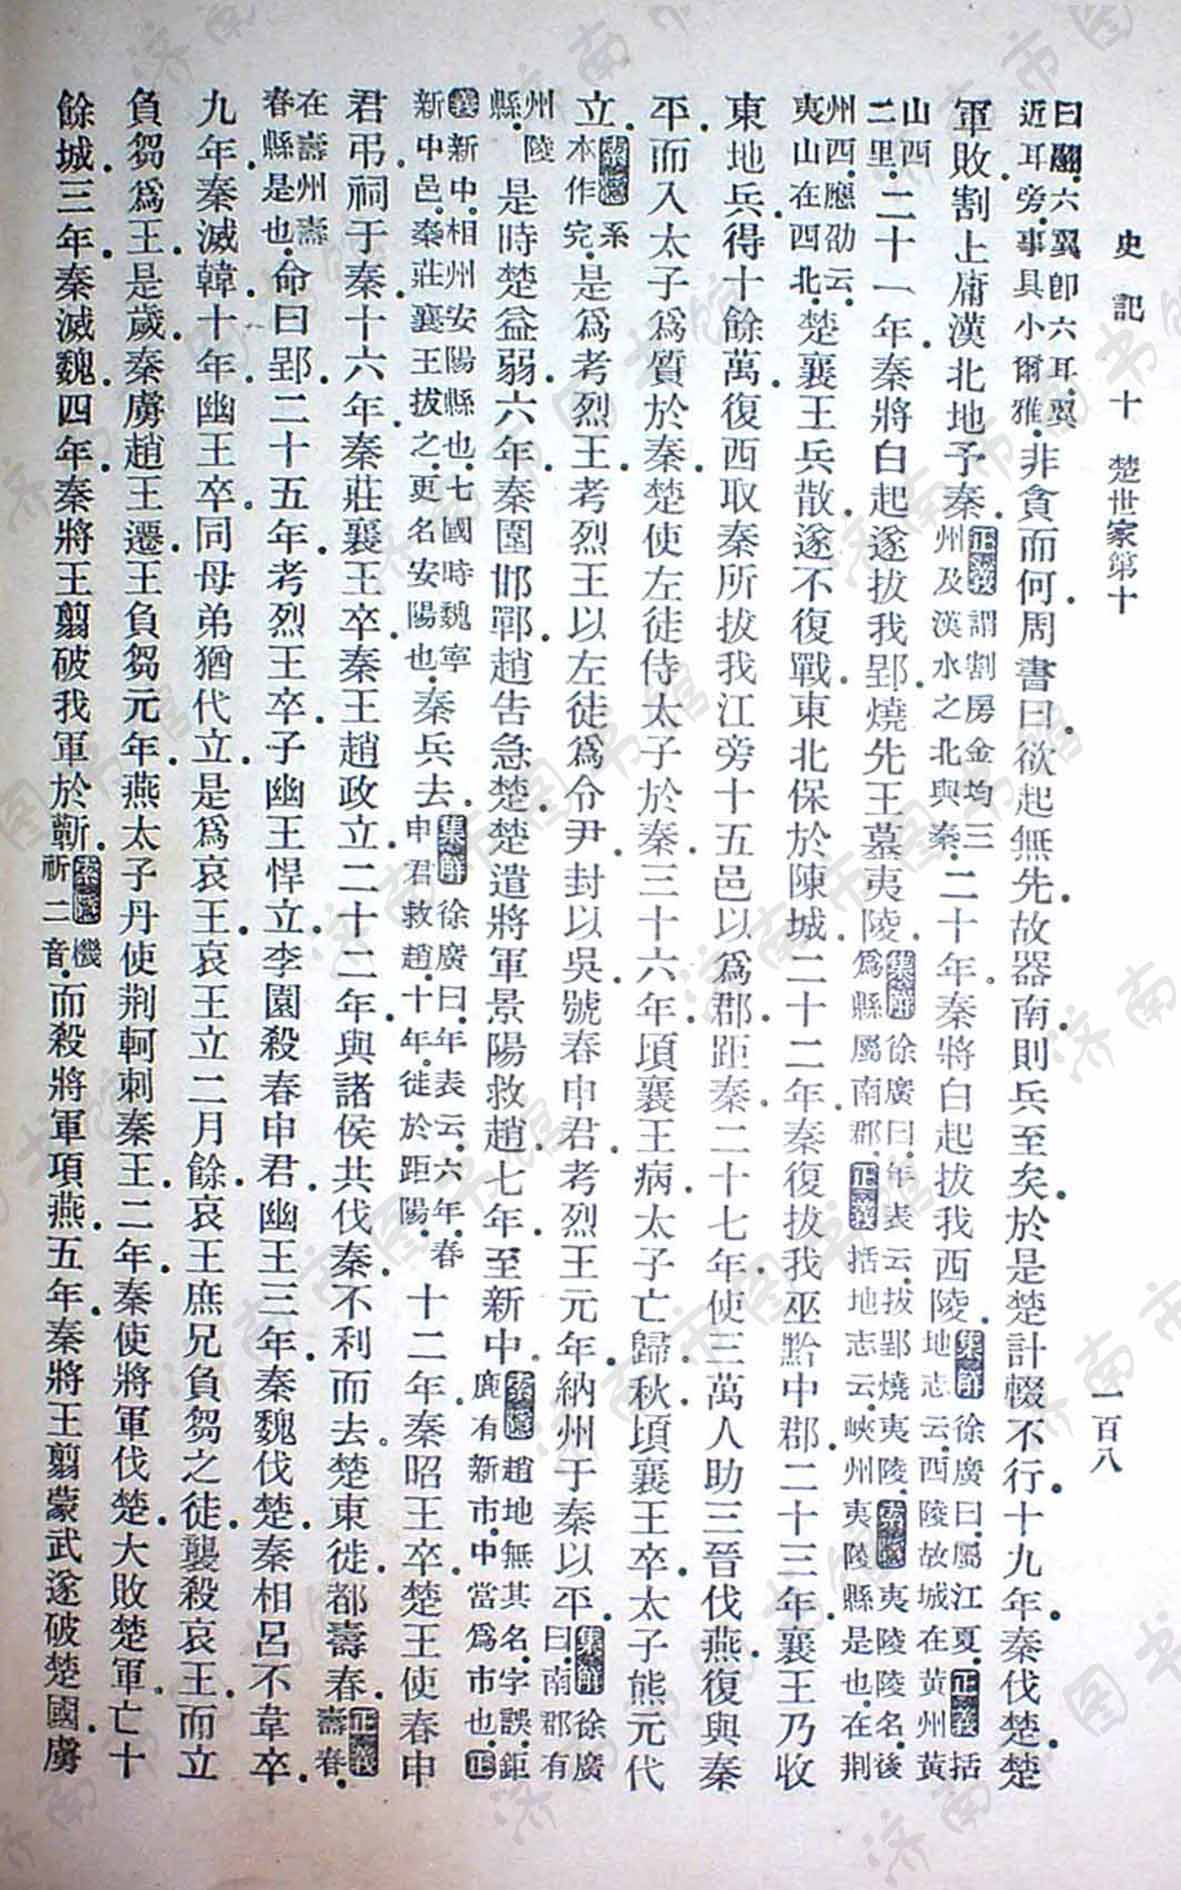 史記 十 楚世家第十 一百八
曰翮。六翼卽六耳。翼近耳旁。事具小爾雅。非貪而何。周書曰。欲起無先。故器南。則兵至矣。於是楚計輟不行。十九年。秦伐楚。楚
軍敗。割上庸漢北地予秦。正義謂割房金均三州及漢水之北與秦。二十年。秦將白起拔我西陵。集解徐廣曰。屬江夏。正義括地志云。西陵故城在黃州黃
山西二里。二十一年。秦將白起遂拔我郢。燒先王墓夷陵。集解徐廣曰。年表云。拔郢燒夷陵。索隱夷陵陵名。後爲縣屬南郡。正義括地志云。峽州夷陵縣是也。在荆
州西。應劭云。夷山在西北。楚襄王兵散。遂不復戰。東北保於陳城。二十二年。秦復拔我巫黔中郡。二十三年。襄王乃收
東地兵。得十餘萬。復西取秦所拔我江旁十五邑以爲郡。距秦。二十七年。使三萬人助三晉伐燕。復與秦
平。而入太子爲質於秦。楚使左徒侍太子於秦。三十六年。頃襄王病。太子亡歸。秋。頃襄王卒。太子熊元代
立。索隱系本作完。是爲考烈王。考烈王以左徒爲令尹。封以吳。號春申君。考烈王元年。納州于秦以平。集解徐廣曰。南郡有
州陵縣。是時楚益弱。六年。秦圍邯鄲。趙告急楚。楚遣將軍景陽救趙。七年。至新中。索隱趙地無其名。字誤。鉅鹿有新市。中當爲市也。正
義新中。相州安陽縣也。七國時魏寧新中邑。秦莊襄王拔之。更名安陽也。秦兵去。集解徐廣曰。年表云。六年。春申君救趙。十年。徙於距陽。十二年。秦昭王卒。楚王使春申
君弔祠于秦。十六年。秦莊襄王卒。秦王趙政立。二十二年。與諸侯共伐秦。不利而去。楚東徙。都壽春。正義壽春。
在壽州壽春縣是也。命曰郢。二十五年。考烈王卒。子幽王悍立。李園殺春申君。幽王三年。秦魏伐楚。秦相呂不韋卒。
九年。秦滅韓。十年。幽王卒。同母弟猶代立。是爲哀王。哀王立二月餘。哀王庶兄負芻之徒。襲殺哀王。而立
負芻爲王。是歲。秦虜趙王遷。王負芻元年。燕太子丹使荆軻刺秦王。二年。秦使將軍伐楚。大敗楚軍。亡十
餘城。三年。秦滅魏。四年。秦將王翦破我軍於蘄。索隱機祈二音。而殺將軍項燕。五年。秦將王翦蒙武遂破楚國。虜